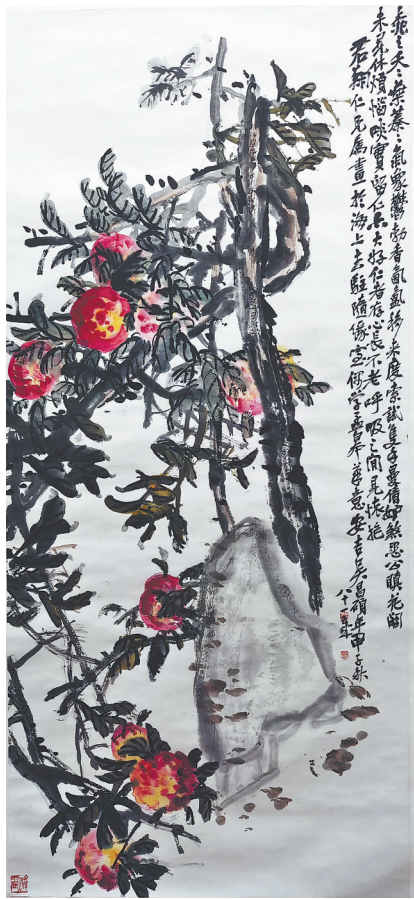 桃之夭〻葉蓁〻氣象鬱勃香氤氳移來度索試隻手曼倩妒煞愚公瞋花開
未足休煩惱啖實留仁亦大好仁者存心長不老呼吸之間見懷
君翔仁兄屬畫於海上去駐隨緣室偶學孟皋筆意安吉吳昌碩年甲子秋
八十一